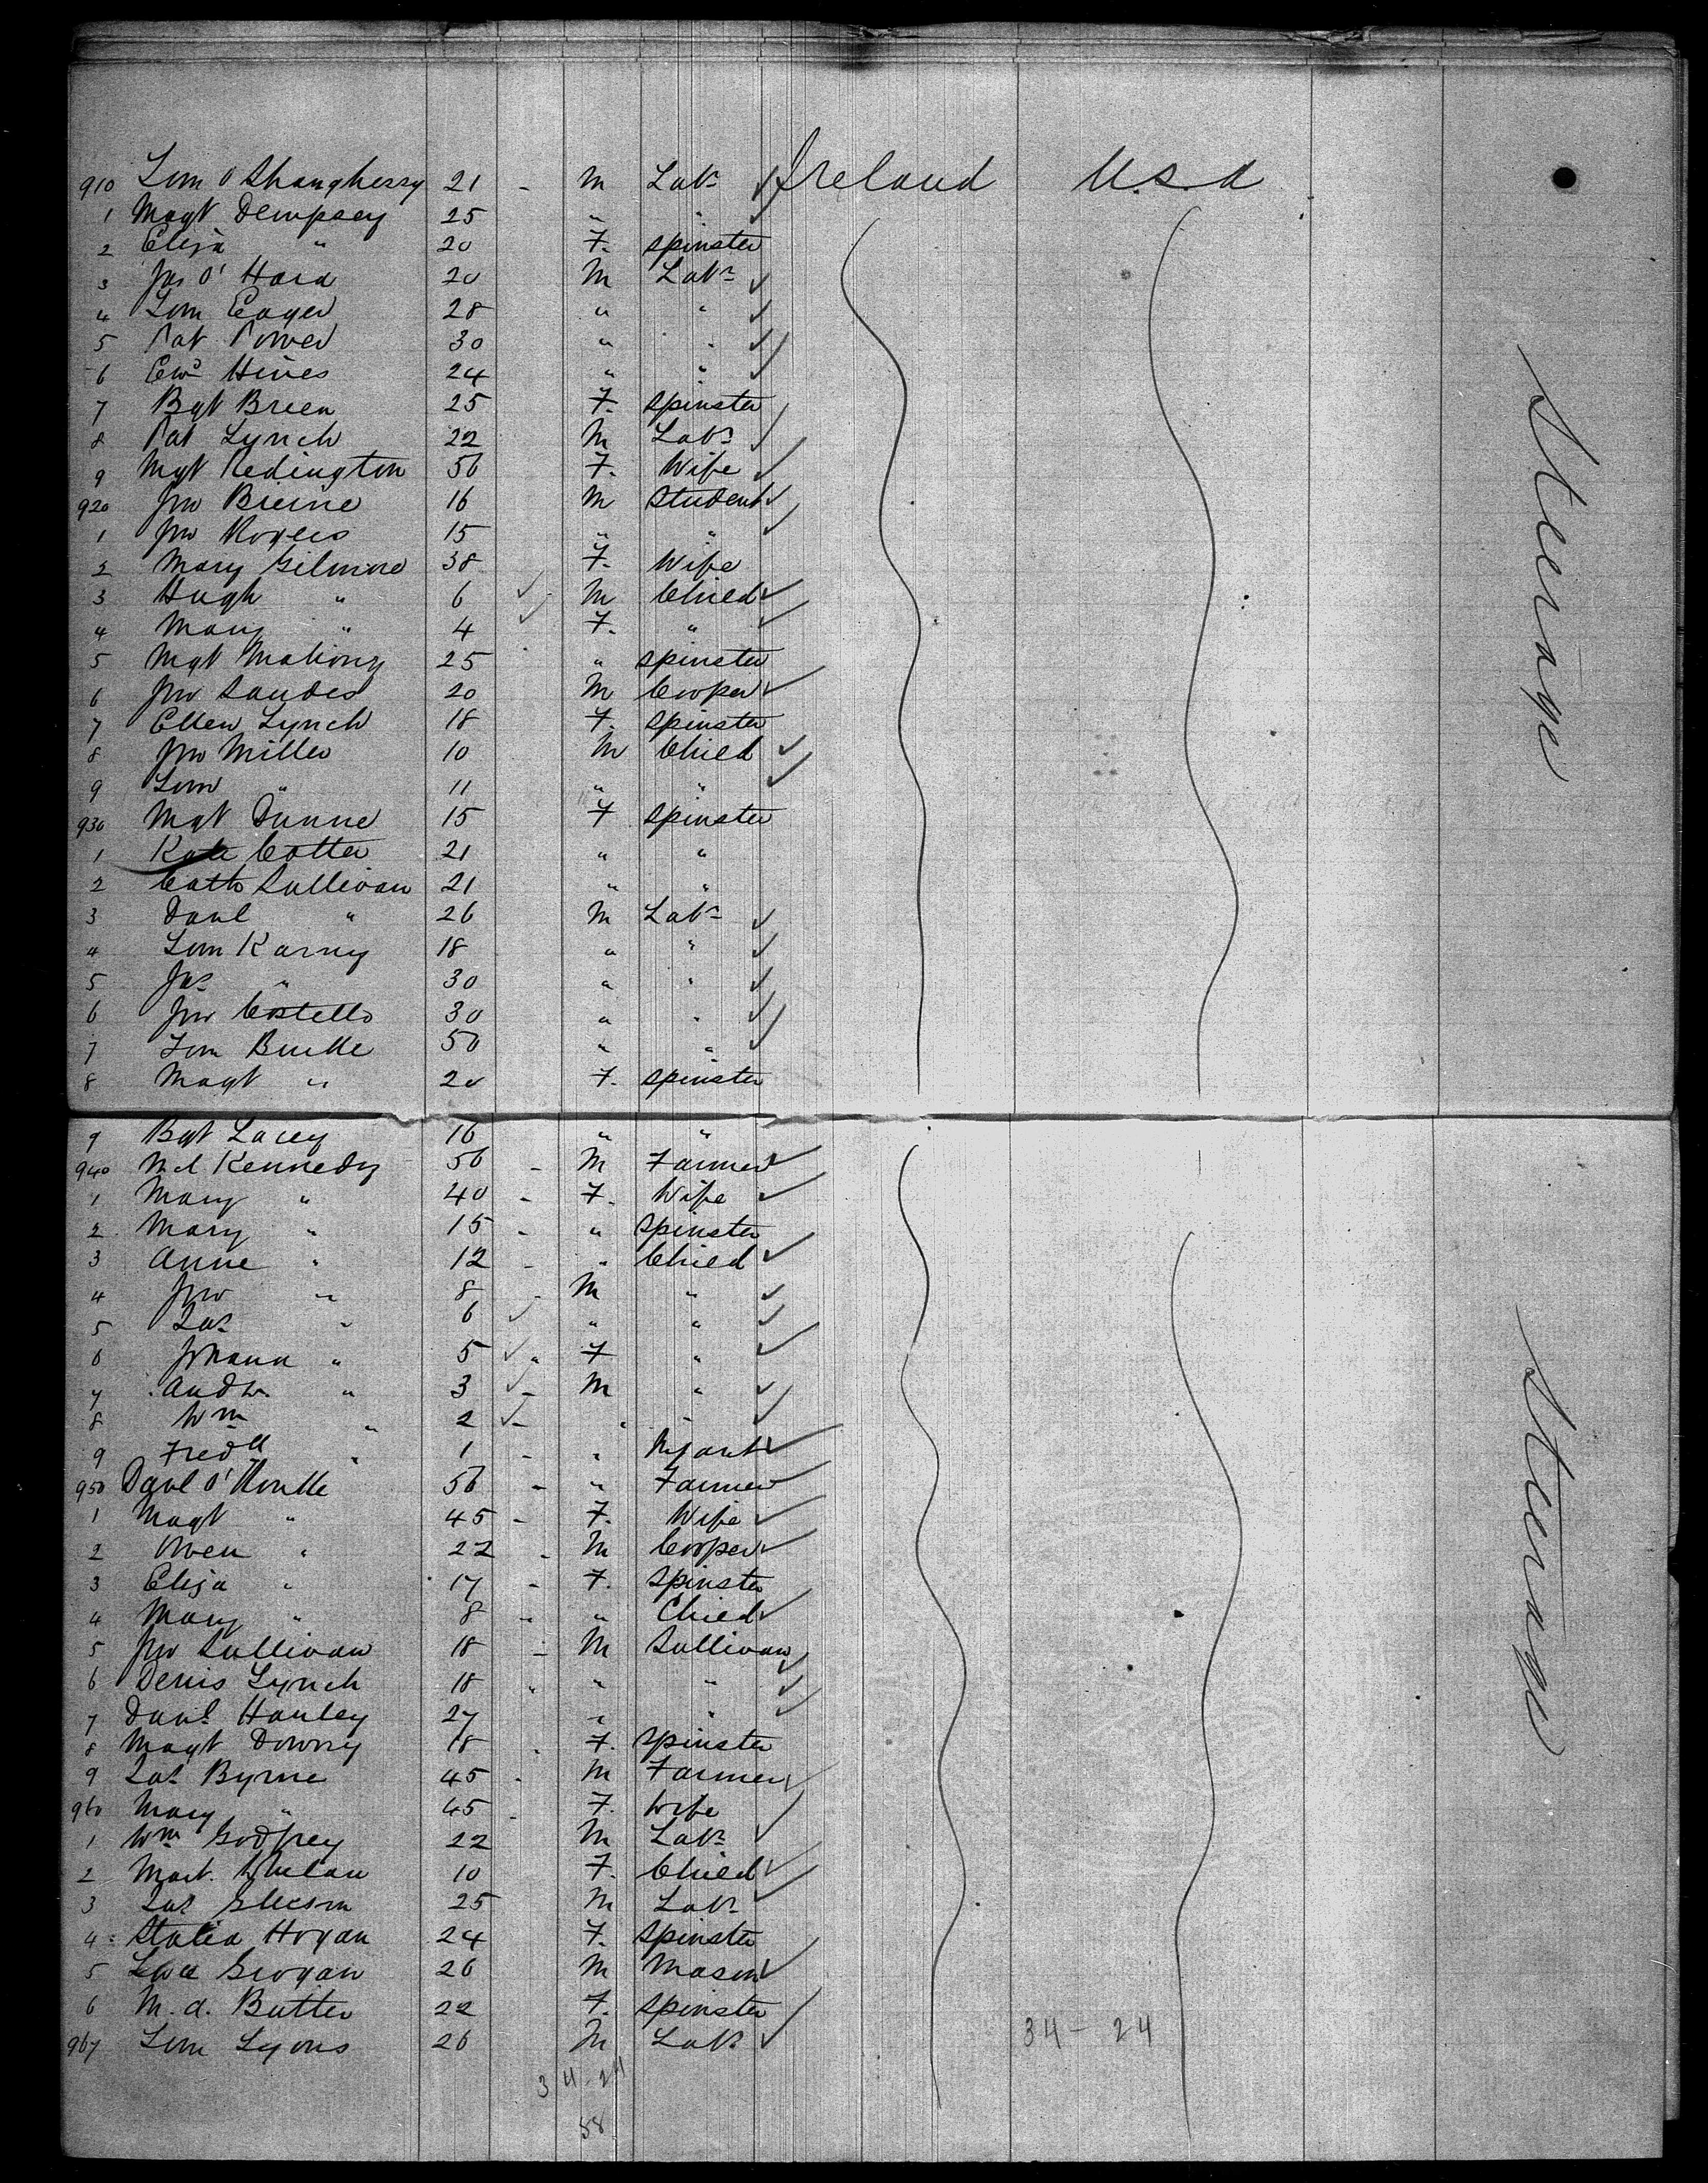 910 Tom O'Shaughnessy 21 - M Labr Ireland U.S.A
1 Magt Dempsey 25 " "
2 Eliza " 20 F. Spinster
3 Jas O'Hara 20 M Labr
4 Tom Eager 28 " "
5 Pat Power 30 " "
6 Edwd Hines 24 " "
7 Bgt Breen 25 F. Spinster
8 Pat Lynch 22 M Labr
9 Mgt Redington 50 F. Wife
920 Jno Beirne 16 M Student
1 Jno Rogers 15 " "
2 Mary Gilmore 38 F. Wife
3 Hugh " 6 M Child
4 Mary " 4 F. "
5 Mgt Mahony 25 " Spinster
6 Jno Sandes 20 M Cooper
7 Ellen Lynch 18 F. Spinster
8 Jno Miller 10 M Child
9 Tom " 11 " "
930 Mgt Dunne 15 F Spinster
1 Kate Cotter 21 " "
2 Cath Sullivan 21 " "
3 Danl " 26 M Labr
4 Tom Karny 18 " "
5 Jas " 30 " "
6 Jno Costello 30 " "
7 Tom Burke 50 " "
8 Magt " 20 F. Spinster
9 Bgt Lacey 16 " "
940 Ml Kennedy 50 - M Farmer
1 Mary " 40 - F. Wife
2 Mary " 15 - " Spinster
3 Anne " 12 - " Child
4 Jno " 8 - M "
5 Pat " 6 " "
6 Johana " 5 " F "
7 Andw " 3 - M "
8 Wm " 2 - " "
9 Fredk " 1 - " Infant
950 Danl O'Rourke 50 - " Farmer
1 Magt " 45 - F. Wife
2 Owen " 22 - M Cooper
3 Eliza " 17 - F. Spinster
4 Mary " 8 - " Child
5 Jno Sullivan 18 - M Sullivan
6 Denis Lynch 18 " " "
7 Danl Hanley 27 " "
8 Magt Downy 18 - F. Spinster
9 Pat Byrne 45 - M Farmer
960 Mary " 45 - F. Wife
1 Wm Godfrey 22 M Labr
2 Mart. Whelan 10 F. Child
3 Pat Gleeson 25 M Labr
4 Statia Hogan 24 F. Spinster
5 Grogan 26 M Mason
6 M. A. Butler 22 F. Spinster
967 Tom Lyons 26 M Labr
34 - 24
34 - 24
58
Steerage
Steerage